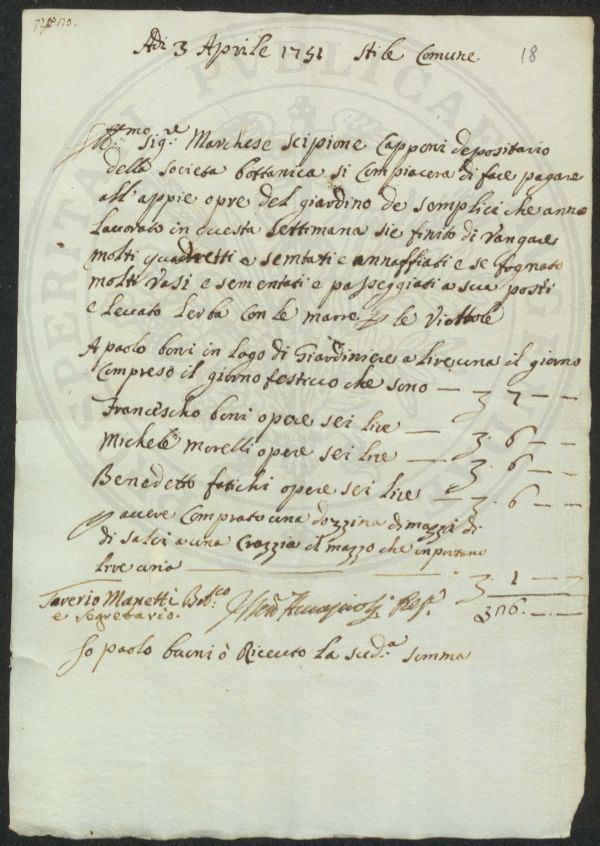 18
Adi 3 Aprile 1751 stile Comune
Ill:mo Sig:re Marchese Scipione Capponi depositario
della societa bottanica si Compiacera di fare pagare
all'appie opre del giardino de semplici che anno
Lauorato in questa settimana sie finito di vangare
molti quadretti e semtati e annaffiati e se fognato
molti vasi e sementati e passeggiati a sua posti
e Leuato Lerba con le marre p le Viottole
A paolo boni in Logo di Giardiniere a lire una il giorno
Compreso il giorno festiuo che sono — 7 — —
Francescho boni opere sei lire — 6 — —
Michele morelli opere sei lire — 6 — —
Benedetto fatichi opere sei lire — 6 — —
p auere Comprato una dozzina di mazzi di
di salci a una Crazzia il mazzo che inportano
lire una — 1 — —
Saverio Manetti Bot:co
e Segretario.
Io paolo buoni ò Riceuto La sud:a somma